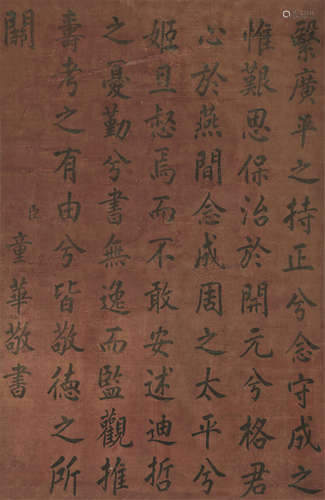 繄廣平之持正兮念守成之
惟艱思保治於開元兮格君
心於燕閒念成周之太平兮
姬旦惄焉而不敢安述迪哲
之憂勤兮書無逸而監觀推
壽考之有由兮皆敬德之所
關
臣童華敬書